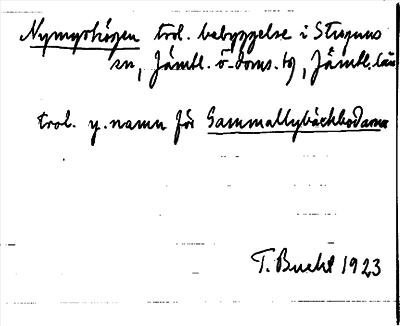 Nymyrhögen trol. bebyggelse i Stuguns
sn, Jämtl. ö. doms. tg, Jämtl. län
trol. y. namn för Gammallybäckbodarna
T. Bucht 1923